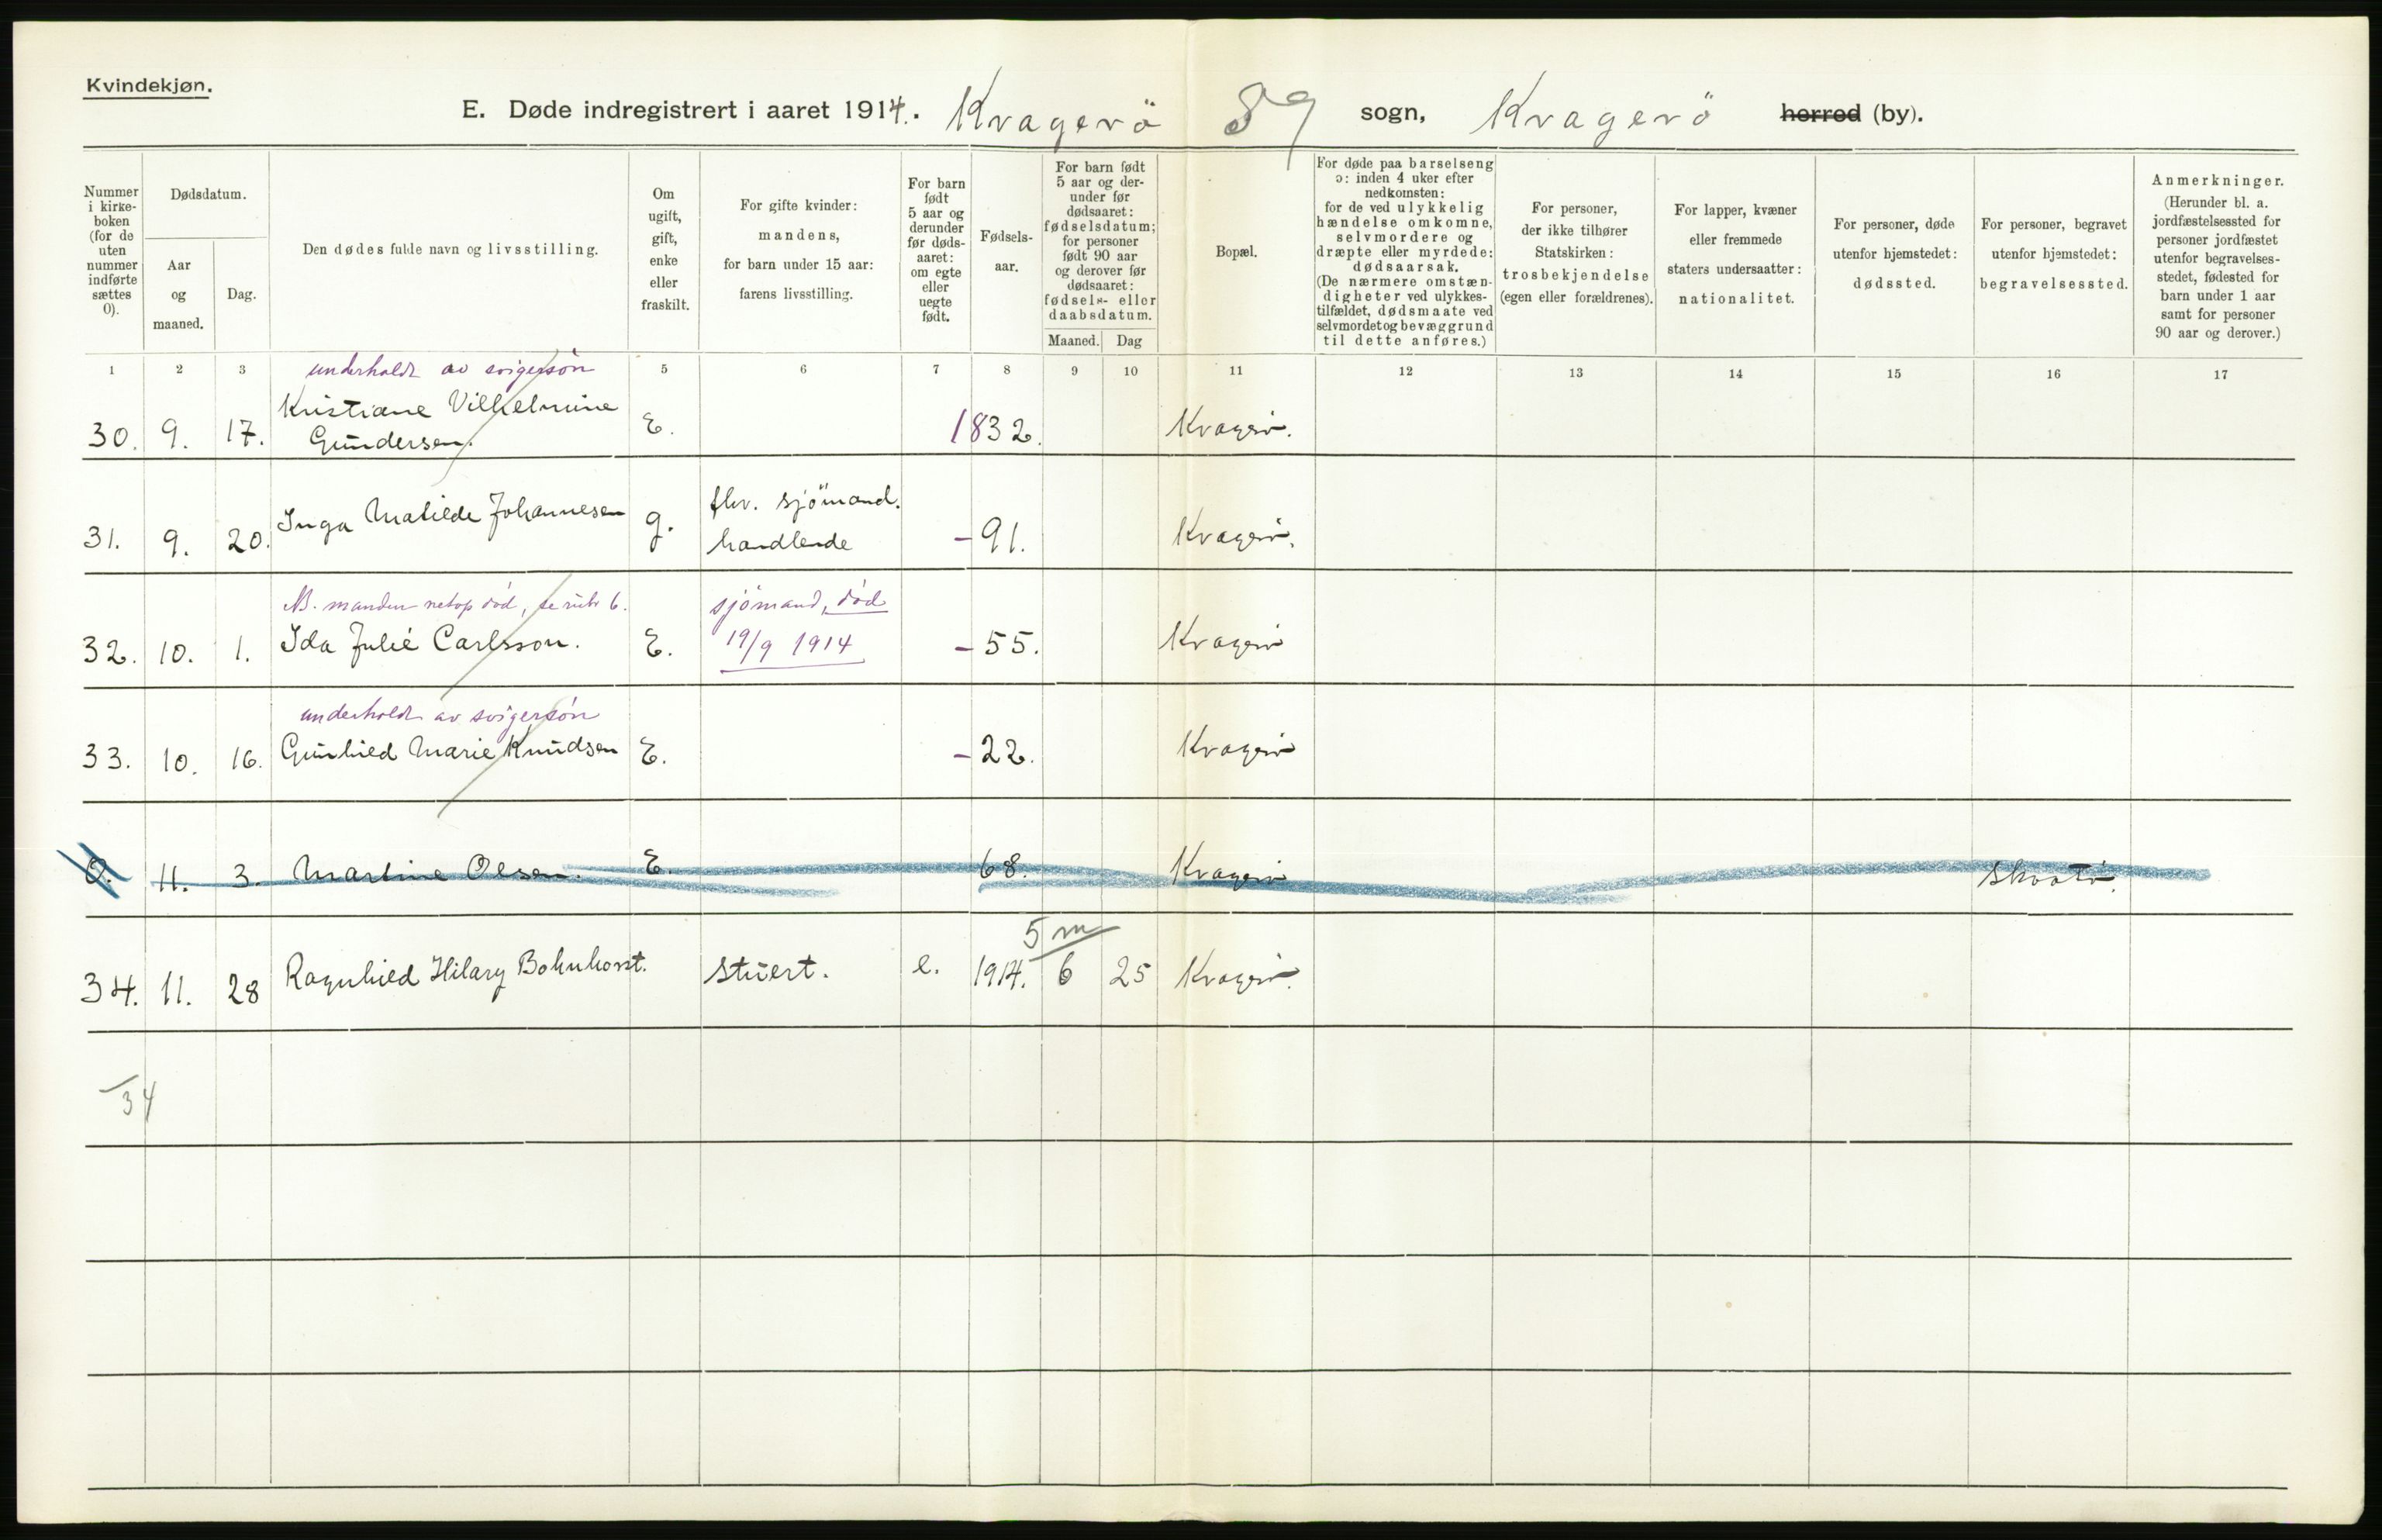 Kvindekjøn.
E. Døde indregistrert i aaret 1914. Kragerö 89 sogn, Kragerö herred (by).
Nummer i kirke-boken (for de uten nummer indførte sættes 0).
Dødsdatum.
Aar og maaned.
Dag.
Den dødes fulde navn og livsstilling.
Om ugift, gift, enke eller fraskilt.
For gifte kvinder: mandens, for barn under 15 aar: farens livsstilling.
For barn født 5 aar og derunder før døds-aaret: om egte eller uegte født.
Fødsels-aar.
For barn født 5 aar og der-under før dødsaaret: fødselsdatum; for personer født 90 aar og derover før dødsaaret: fødsels- eller daabsdatum.
Maaned. Dag
Bopæl.
For døde paa barselseng ɔ: inden 4 uker efter nedkomsten: for de ved ulykkelig hændelse omkomne, selvmordere og dræpte eller myrdede: dødsaarsak. (De nærmere omstæn-digheter ved ulykkes-tilfældet, dødsmaate ved selvmordet og bevæggrund til dette anføres.)
For personer, der ikke tilhører Statskirken: trosbekjendelse (egen eller forældrenes).
For lapper, kvæner eller fremmede staters undersaatter: nationalitet.
For personer, døde utenfor hjemstedet: dødssted.
For personer, begravet utenfor hjemstedet: begravelsessted.
Anmerkninger. (Herunder bl. a. jordfæstelsessted for personer jordfæstet utenfor begravelses-stedet, fødested for barn under 1 aar samt for personer 90 aar og derover.)
1 2 3 5 6 7 8 9 10 11 12 13 14 15 16 17
underholdt av svigersøn
30. 9. 17. Kristiane Vilhelmine Gundersen. E. 1832. Kragerø.
31. 9. 20. Inga Matilde Johannesen g. fhv. sjömand. handlende - 91. Kragerø.
NB. manden netop død, se rubr 6. sjömand, død
32. 10. 1. Ida Julie Carlsson. E. 19/9 1914 - 55. Kragerø
underholdt av svigersøn
33. 10. 16. Gunhild Marie Knudsen E. - 22. Kragerø
0. 11. 3. Martine Olsen. E. 68. Kragerø Skaatø.
5 m
34. 11. 28 Ragnhild Hilary Bohnhorst. Stuert. e. 1914. 6 25 Kragerø.
34